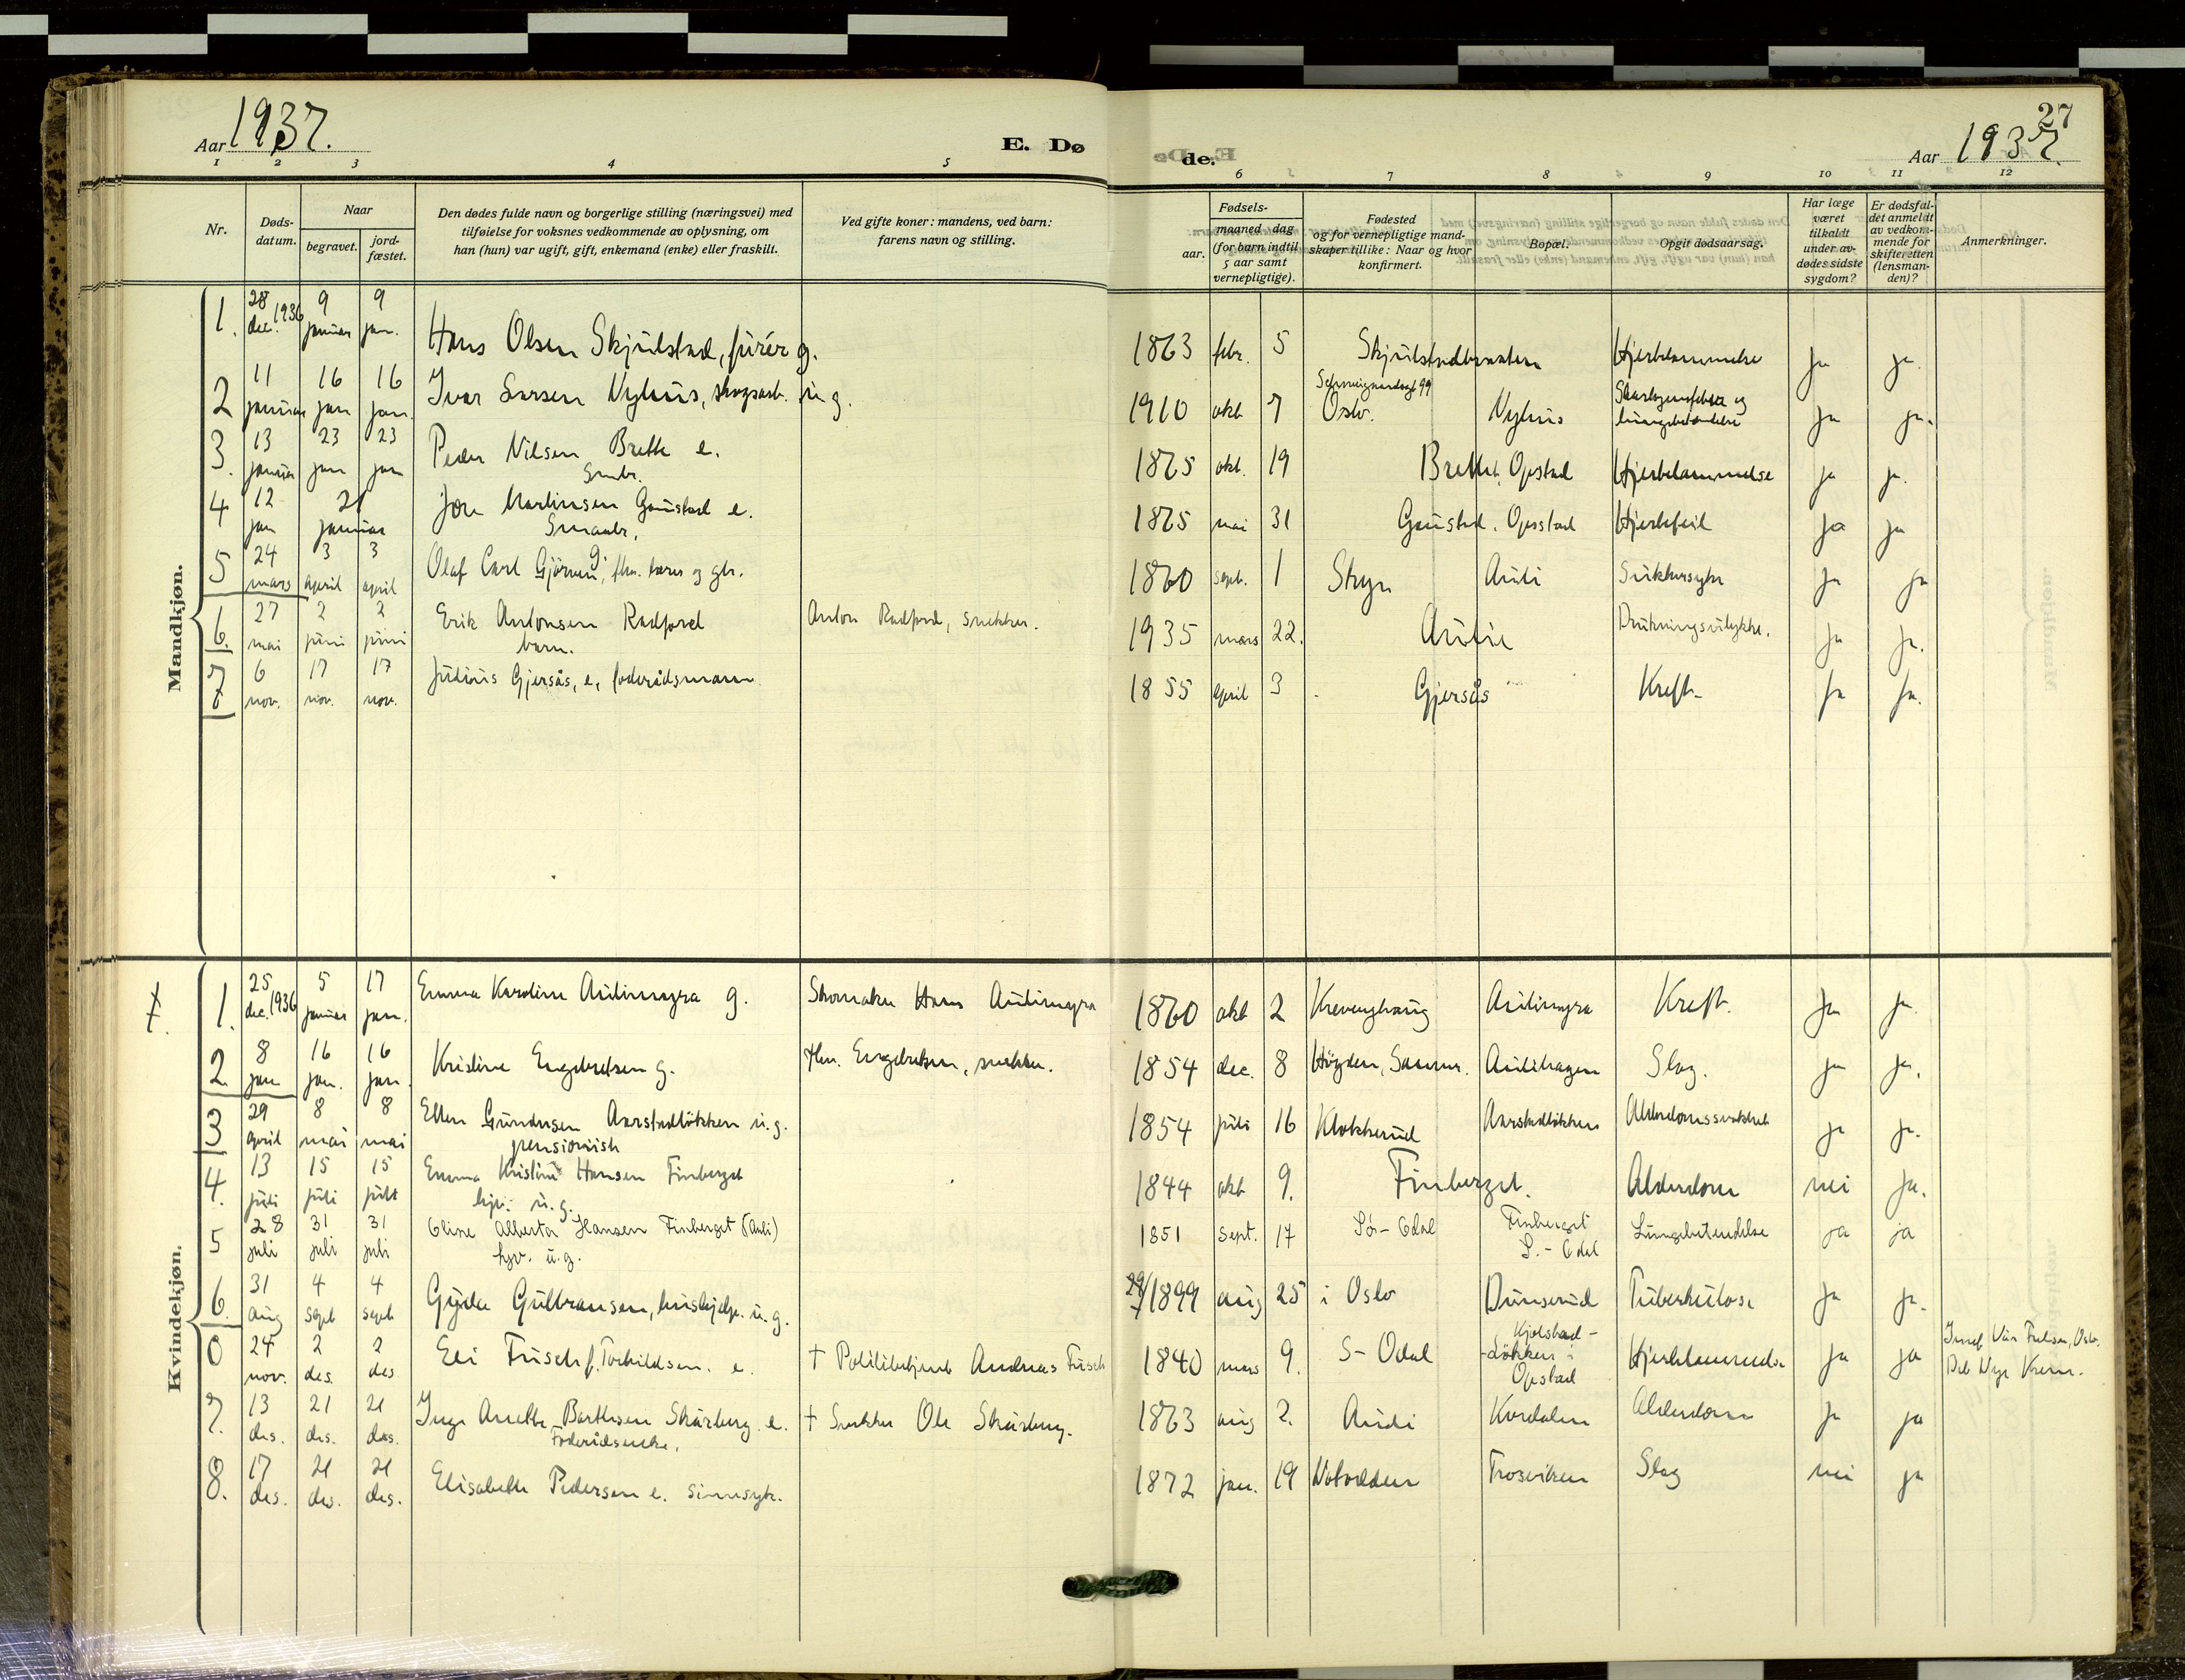 1937.
Aar
E. Dø
de.
27
Aar 1937.
1 2 3 4 5 6 7 8 9 10 11 12
Nr.
Døds-
datum.
Naar
begravet.
jord-
fæstet.
Den dødes fulde navn og borgerlige stilling (næringsvei) med
tilføielse for voksnes vedkommende av oplysning, om
han (hun) var ugift, gift, enkemand (enke) eller fraskilt.
Ved gifte koner: mandens, ved barn:
farens navn og stilling.
Fødsels-
aar.
maaned dag
(for barn indtil
5 aar samt
vernepligtige).
Fødested
og for vernepligtige mand-
skaper tillike: Naar og hvor
konfirmert.
Bopæl.
Opgit dødsaarsag.
Har læge
været
tilkaldt
under av-
dødes sidste
sygdom?
Er dødsfal-
det anmeldt
av vedkom-
mende for
skifteretten
(lensman-
den)?
Anmerkninger.
Mandkjøn.
1. 28 dec. 1936 9 januar 9 jan. Hans Olsen Skjulstad, g. 1863 febr. 5 Hjertelammelse ja ja.
2 11 januar 16 jan 16 jan. Ivar Larsen Nyhus, skogsarb. u g. 1910 okt 7 Oslo. Nyhus Skarlagensfeber og lungebetændelse ja ja.
3. 13 januar 23 jan 23 jan Peder Nilsen Brette e. Smbr. 1865 okt. 19 Opstad Hjertelammelse ja ja.
4 12 jan 21 januar Martinsen Gaustad e. Smaabr. 1865 mai 31 Gaustad. Opstad Hjertefeil ja ja
5 24 mars 3 april 3 april Olaf Carl g. og gbr. 1860 sept. 1 Stryn Auli Sukkersyke ja ja
6. 27 mai 2 juni 2 juni Erik Antonsen Rudfjord barn. Anton Rudfjord, snekker. 1935 mars 22. Aulie Drukningsulykke. ja ja.
7 6 nov. 17 nov. 17 nov. Julius Gjersås, e, føderådsmann 1855 april 3 Gjersås Kreft ja ja.
Kvindekjøn.
1. 25 dec. 1936 5 januar 17 jan. Emma Karoline Aulimyra g. Skomaker Hans Aulimyra 1860 okt 2 Aulimyra Kreft. ja ja.
2. 8 jan 16 jan. 16 jan. Kristine Engebretsen g. Engebretsen, snekker. 1854 dec. 8 Aulihagen Slag. ja ja.
3 29 april 8 mai 8 mai Ellen Gundersen Aarstadløkken u.g. pensionist 1854 juli 16 Klokkerud Aarstadløkken Alderdomssvakhet ja ja.
4. 13 juli 15 juli 15 juli Emma Kristine Hansen Finberget u.g. 1844 okt 9. Finberget. Alderdom nei ja.
5 28 juli 31 juli 31 juli Oline Alberta Hansen Finberget (Auli) hjv. u.g. 1851 sept. 17 Sör-Odal Finberget S.-Odal Lungebetendelse ja ja
6. 31 aug 4 sept 4 sept Gyda Gulbransen, hushjelp. u.g. 1899 aug 25 i Oslo Dunserud Tuberkulose ja ja.
0 24 nov. 2 des. 2 des Eli Fusch f. Torkildsen. e. † Politibetjent Andreas Fusch 1840 mars 9. S-Odal løkken i Opstad Hjertelammelse ja ja
7. 13 des. 21 des. 21 des. Inga Anette Barthsen Skårberg e. Føderådsenke. † Snekker Ole Skårberg. 1863 aug 2. Auli Kordalen Alderdom ja ja
8. 17 des. 21 des. 21 des. Elisabeth Pedersen e. sinnsyk. 1872 jan. 19 Trosviken Slag nei ja